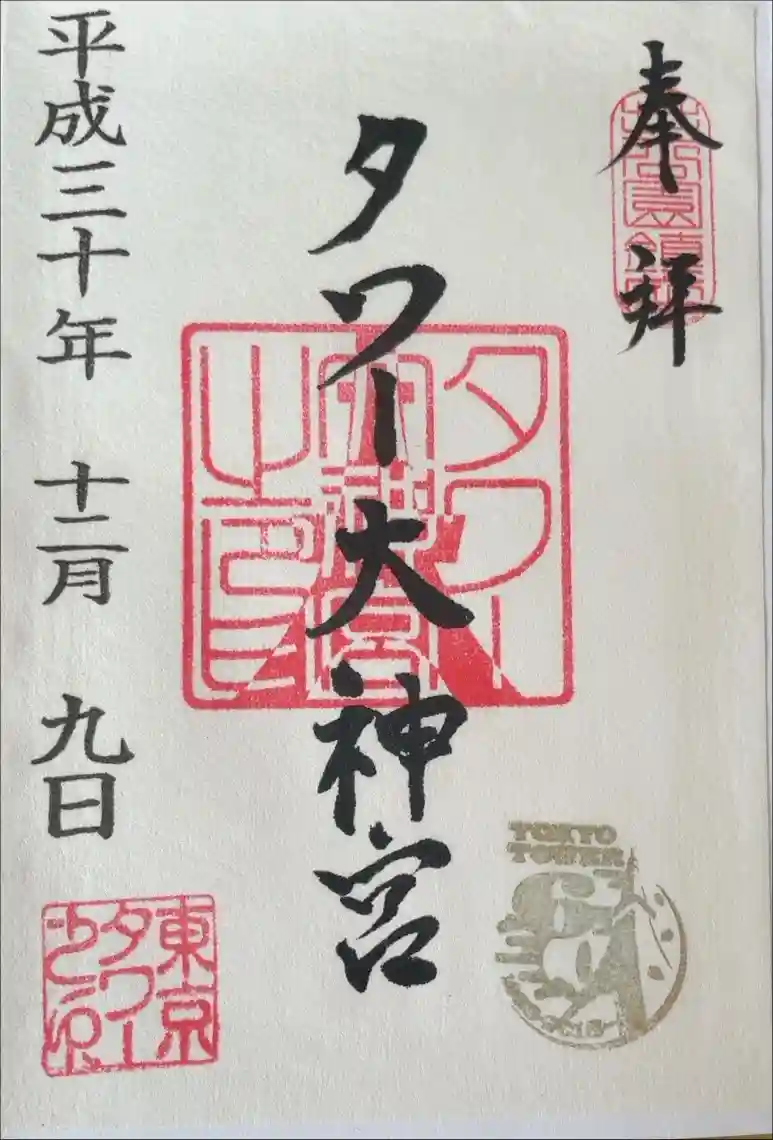 奉拝
タワー大神宮
平成三十年 十二月 九日
タワー
大神宮
之印
東京
タワー
TOKYO
TOWER